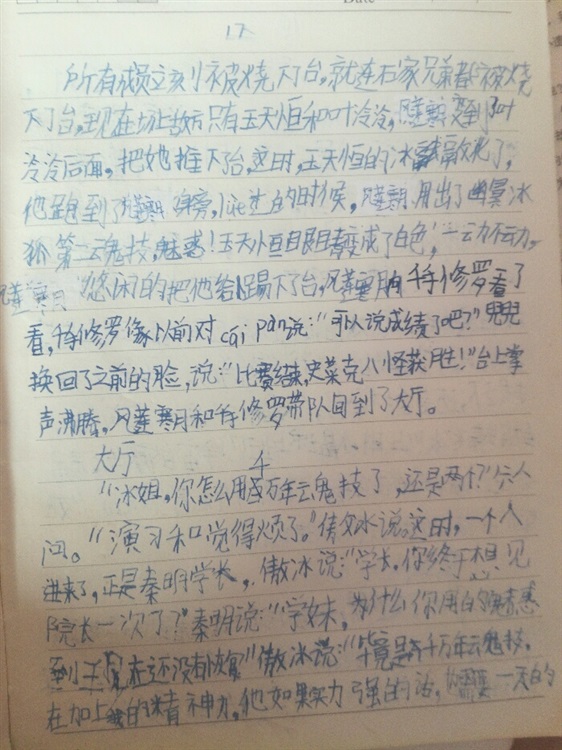 Date
17
所有威立刻被烧下了台,就连石家兄弟都被烧
下了台,现在场上敌方只有玉天恒和叶泠泠,风莲寒月来到了叶
泠泠后面,把她推下了台,这时,玉天恒的冰融化了,
他跑到了风莲寒月身旁,的时候,风莲寒月用出了幽冥冰
狐第二魂技,魅惑!玉天恒眼睛变成了白色,一动不动,
风莲寒月悠闲的把他给踢下了台,风莲寒月向千手修罗看了
看,千手修罗像以前对cái pàn说:“可以说成绩了吧?”
换回了之前的脸,说:“比赛结束,史莱克八怪获胜!”台上掌
声沸腾,风莲寒月和千手修罗带队回到了大厅。
大厅 千
“冰姐,你怎么用万年魂技了,还是两个?”六人
问。“演习和觉得烦了。”倩文冰说。这时,一个人
进来了,正是秦明学长,傲冰说:“学长,你终于想见
院长一次了?”秦明说:“学妹,为什么你用的魅惑
到现在还没”傲冰说:“毕竟是千万年魂技,
在加上我的精神力,他如果实力强的话,需要一天的